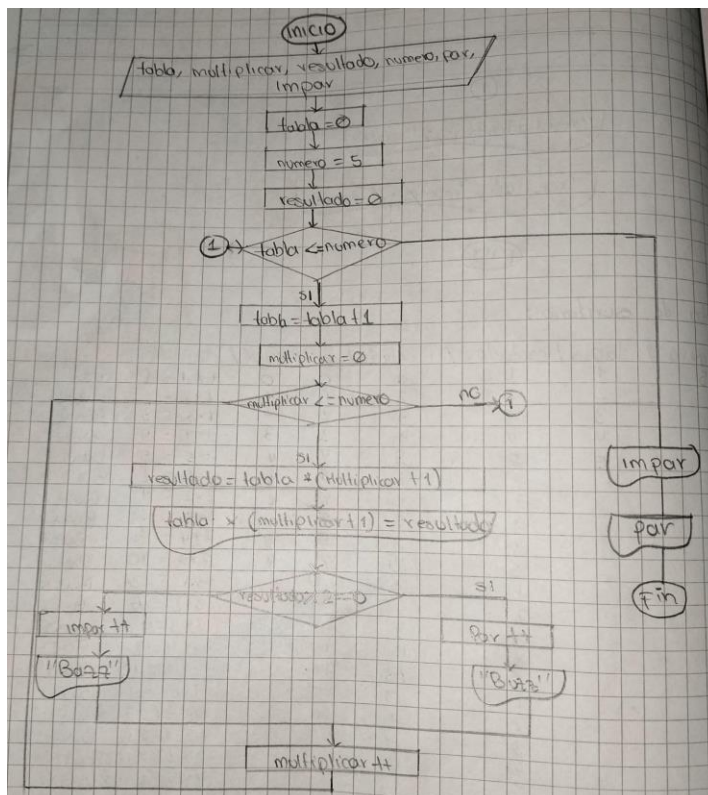 Inicio
tabla, multiplicar, resultado, numero, par,
Impar
tabla = 0
numero = 5
resultado = 0
1
tabla <= numero
SI
tabla = tabla + 1
multiplicar = 0
multiplicar <= numero
no
1
SI
resultado = tabla * (Multiplicar + 1)
tabla * (multiplicar + 1) = resultado
impar
par
Fin
resultado % 2 == 0
SI
impar ++
Par ++
"Bazz"
"Buzz"
multiplicar ++